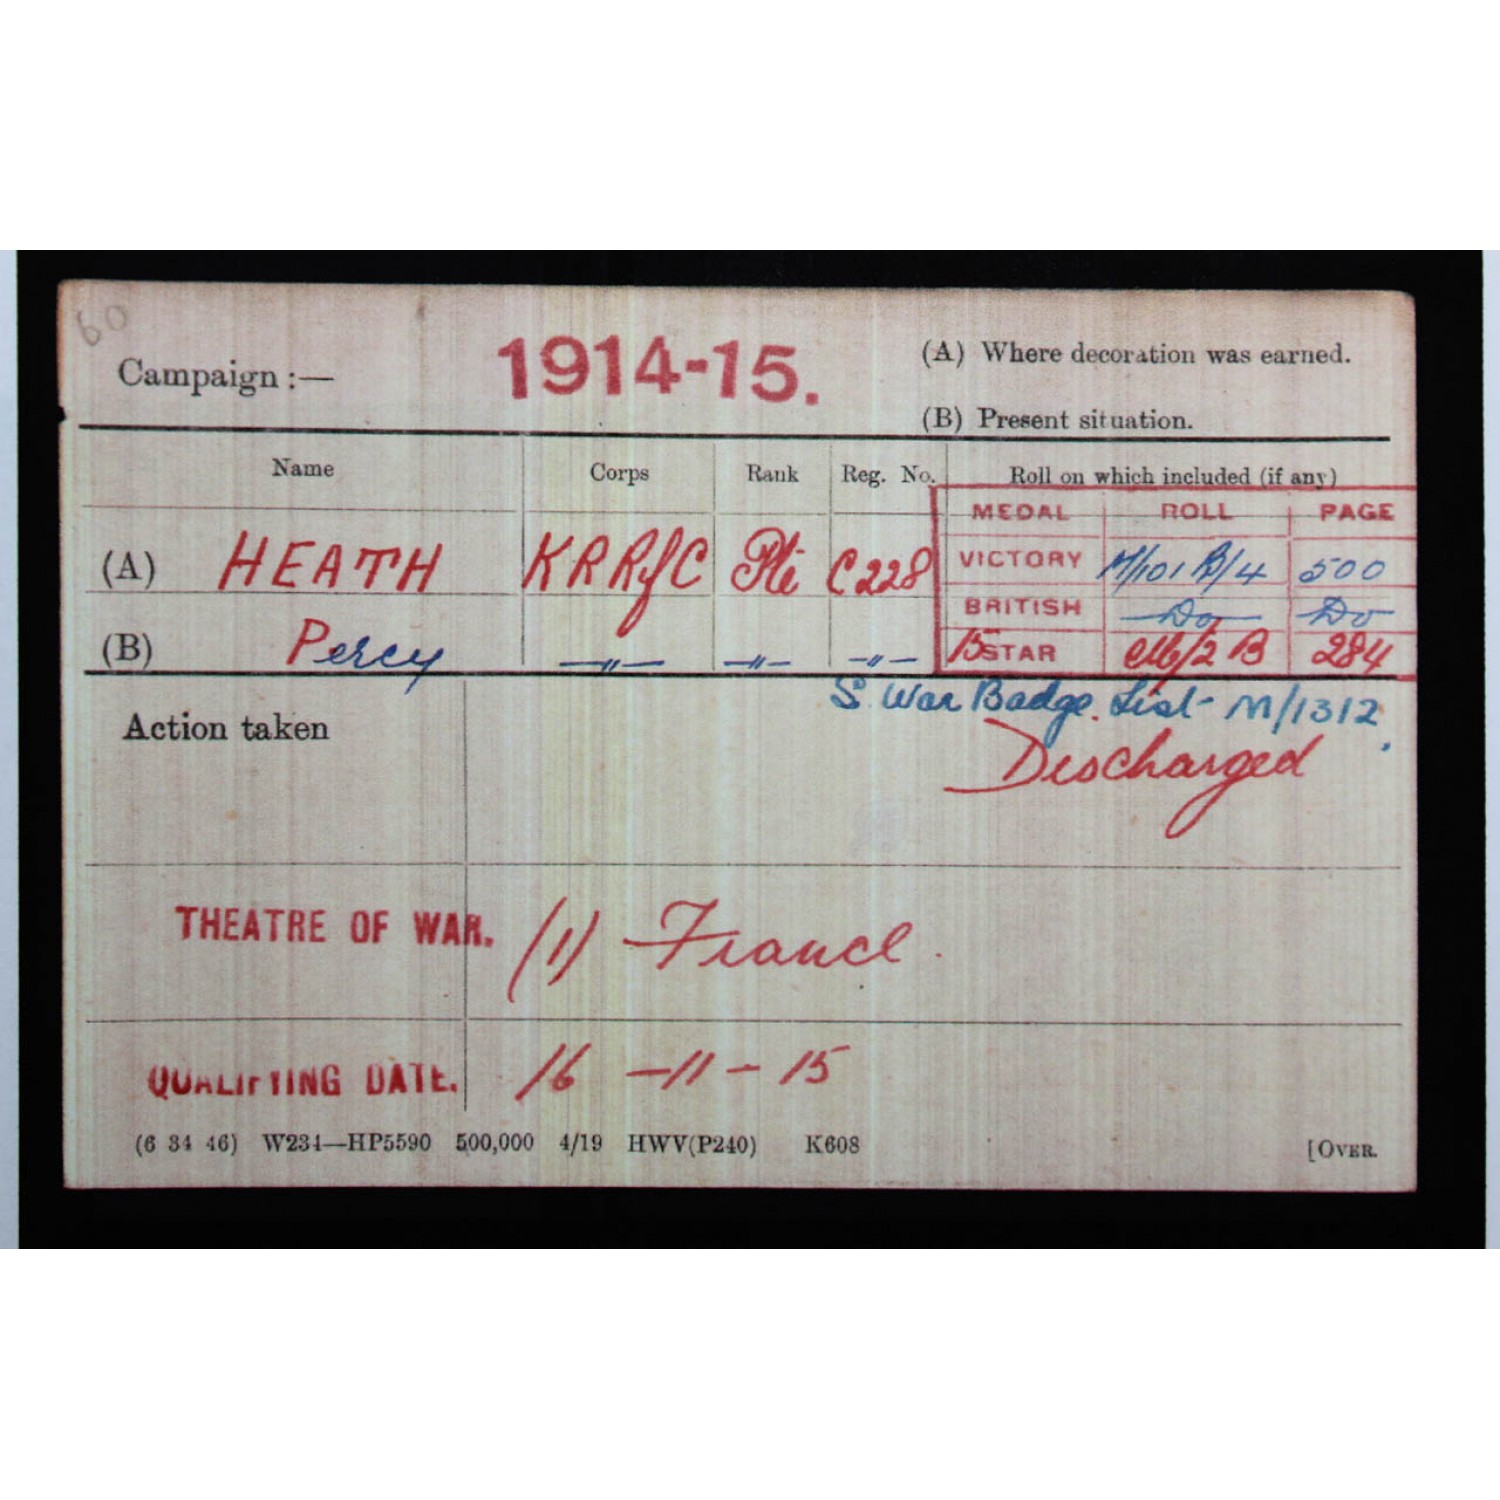 60
Campaign :— 1914-15. (A) Where decoration was earned.
(B) Present situation.
Name Corps Rank Reg. No. Roll on which included (if any)
MEDAL ROLL PAGE
(A) HEATH KRRfC Pte C228 VICTORY H/101 B/4 500
BRITISH —Do— —Do—
(B) Percy —"— —"— —"— 15 STAR CM6/2 B 284
S. War Badge. List - M/1312.
Action taken Discharged
THEATRE OF WAR. (1) France.
QUALIFYING DATE. 16 - 11 - 15
(6 34 46) W234—HP5590 500,000 4/19 HWV(P240) K608 [OVER.